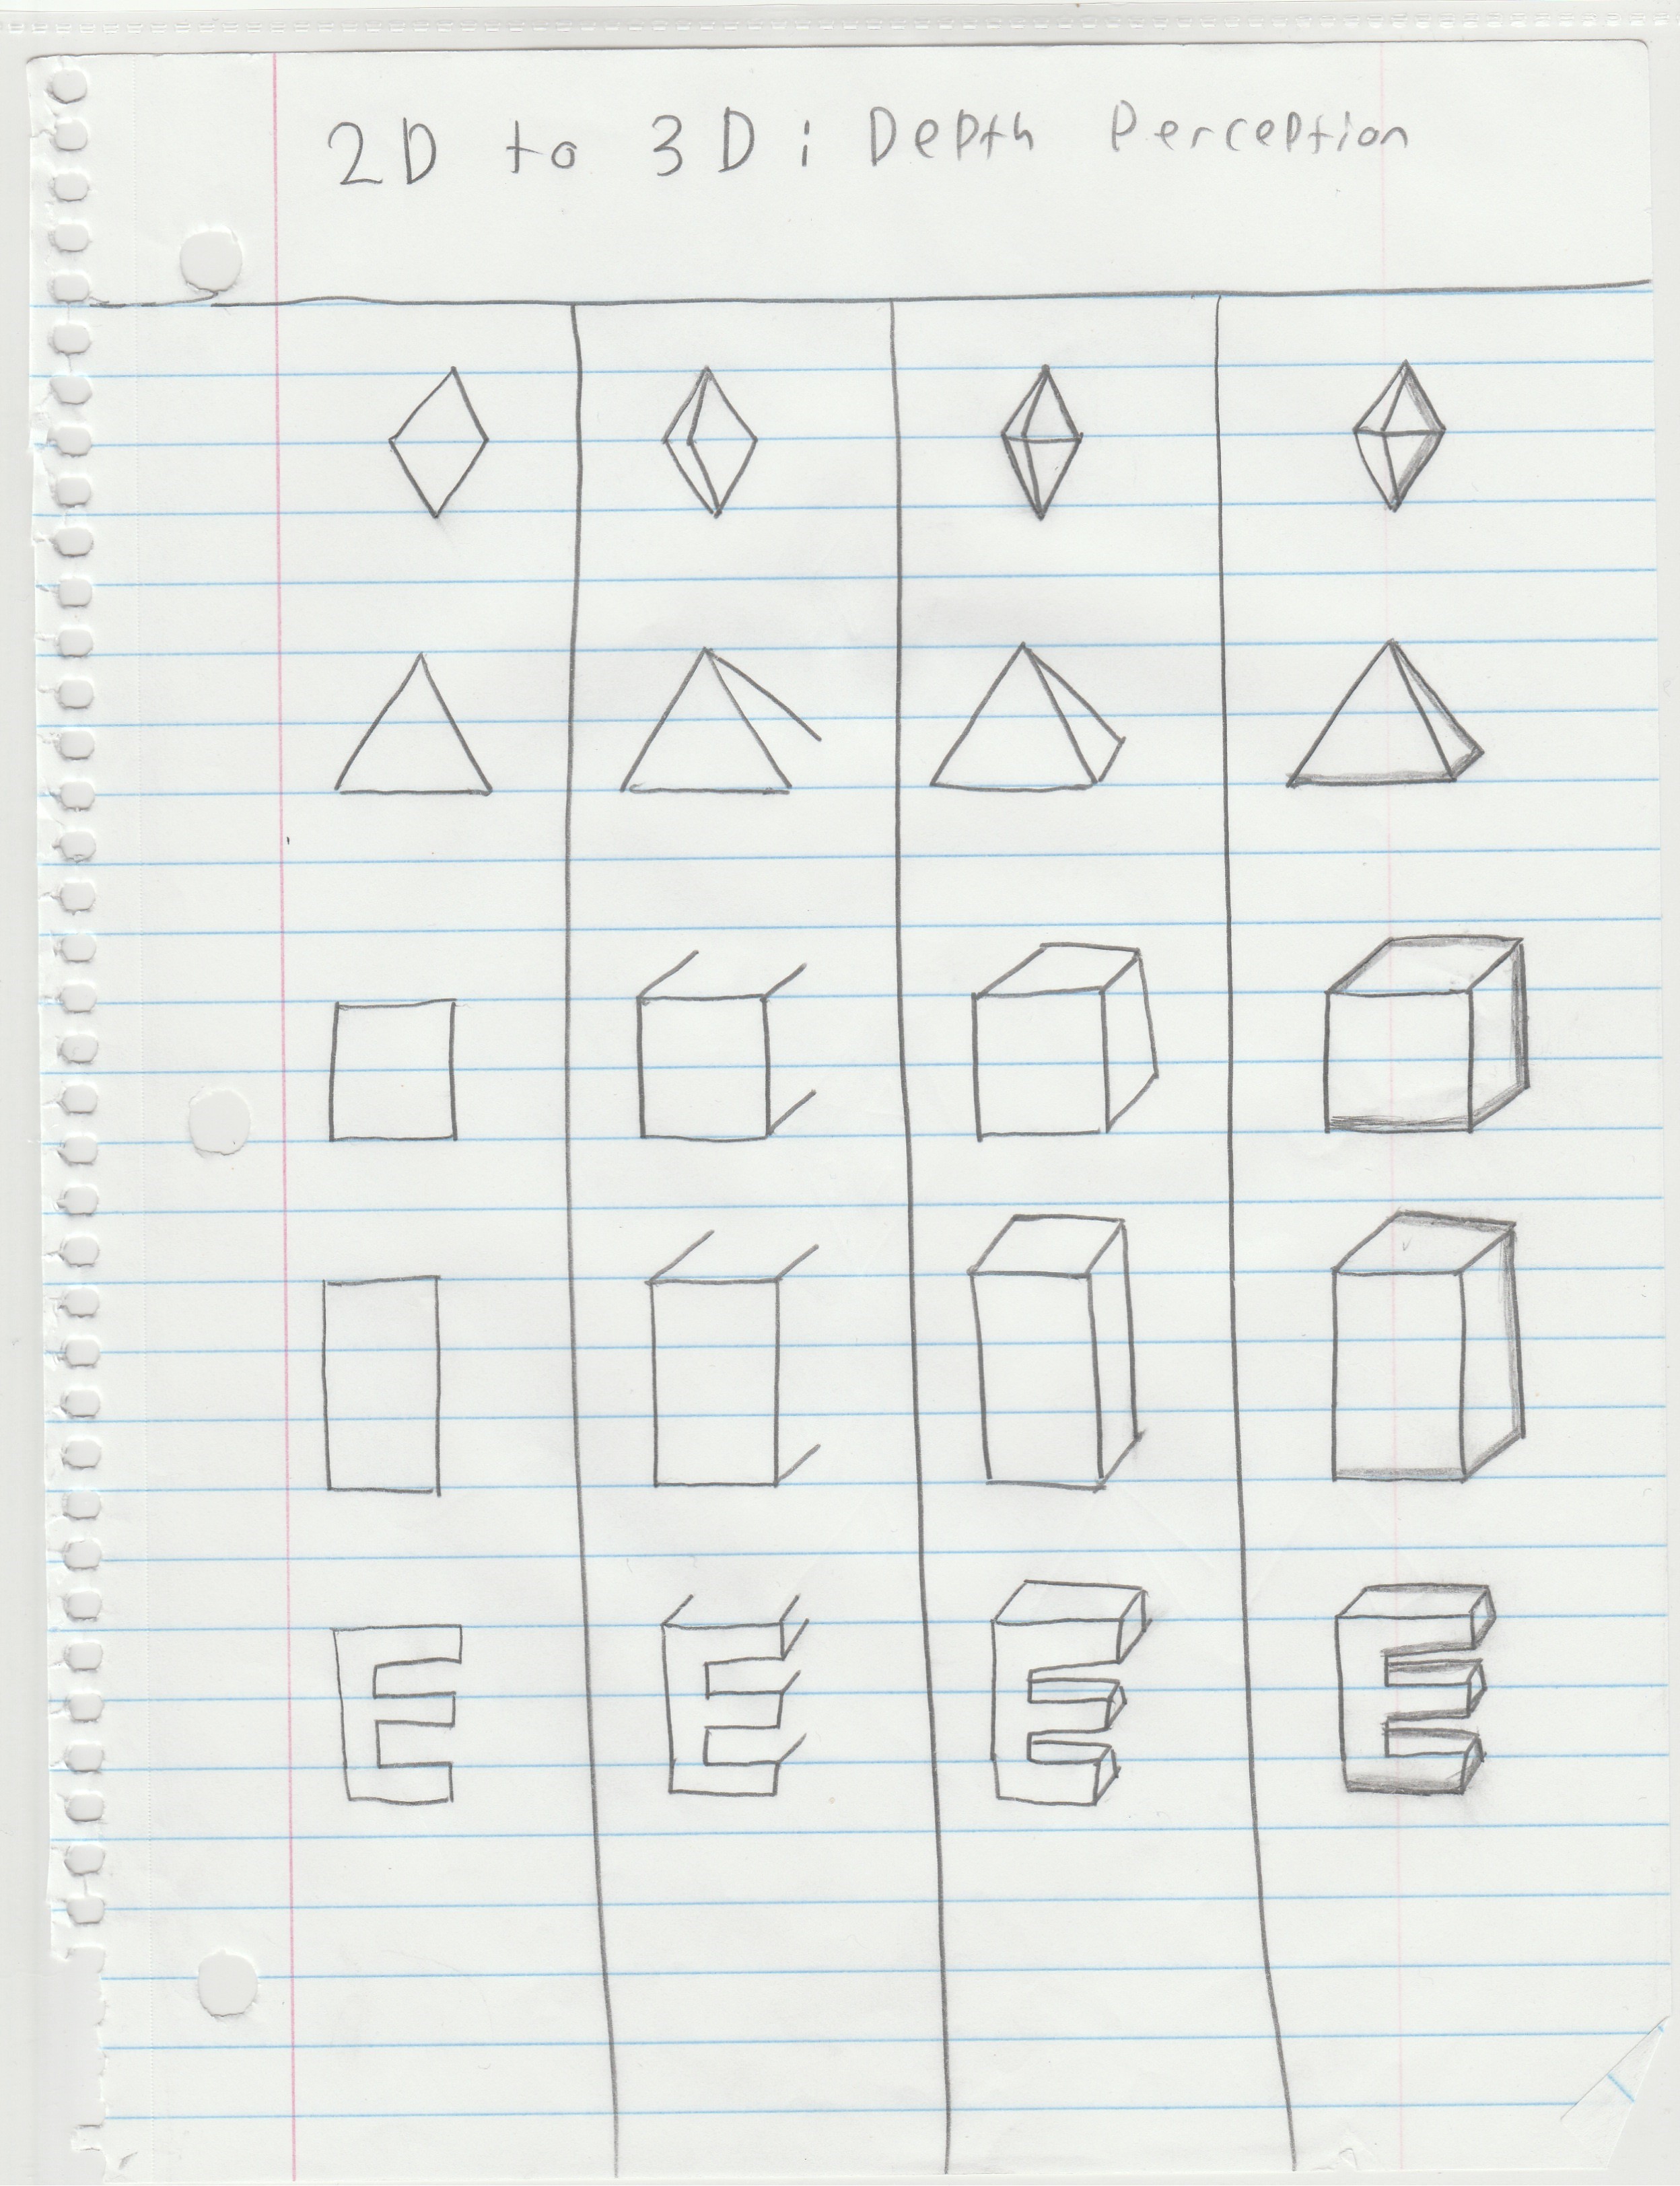 2D to 3D: Depth Perception
E E E E